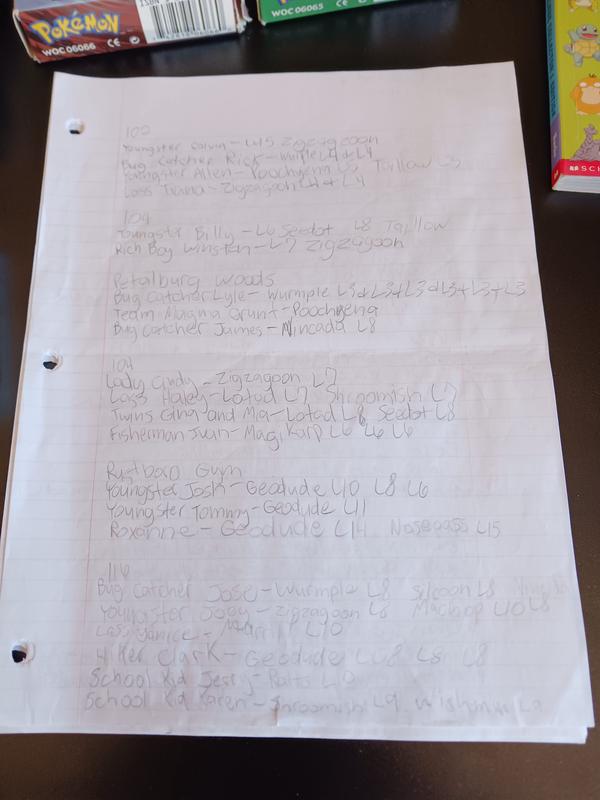 POKéMON
WOC06066 CE
WOC06065 CE
ISBN
SCH
102
Youngster Calvin - L5 Zigzagoon
Bug Catcher Rick - Wurmple L4 & L4
Youngster Allen - Poochyena L3 Taillow L3
Lass Tiana - Zigzagoon L4 & L4
104
Youngster Billy - L6 Seedot L8 Taillow
Rich Boy Winston - L7 Zigzagoon
Petalburg Woods
Bug Catcher Lyle - Wurmple L3 & L3 & L3 & L3 & L3 & L3
Team Magma Grunt - Poochyena
Bug Catcher James - Nincada L8
104
Lady Cindy - Zigzagoon L7
Lass Haley - Lotad L7 Shroomish L7
Twins Gina and Mia - Lotad L8 Seedot L8
Fisherman Ivan - Magikarp L6 L6 L6
Rustboro Gym
Youngster Josh - Geodude L10 L8 L6
Youngster Tommy - Geodude L11
Roxanne - Geodude L14 Nosepass L15
116
Bug Catcher Jose - Wurmple L8 Silcoon L8
Youngster Joey - Zigzagoon L8 Machop L10 L8
Lass Janice - L10
4 Ker Clark - Geodude L8 L8
School Kid Jerry - Ralts L10
School Kid Karen - Shroomish L9 L9